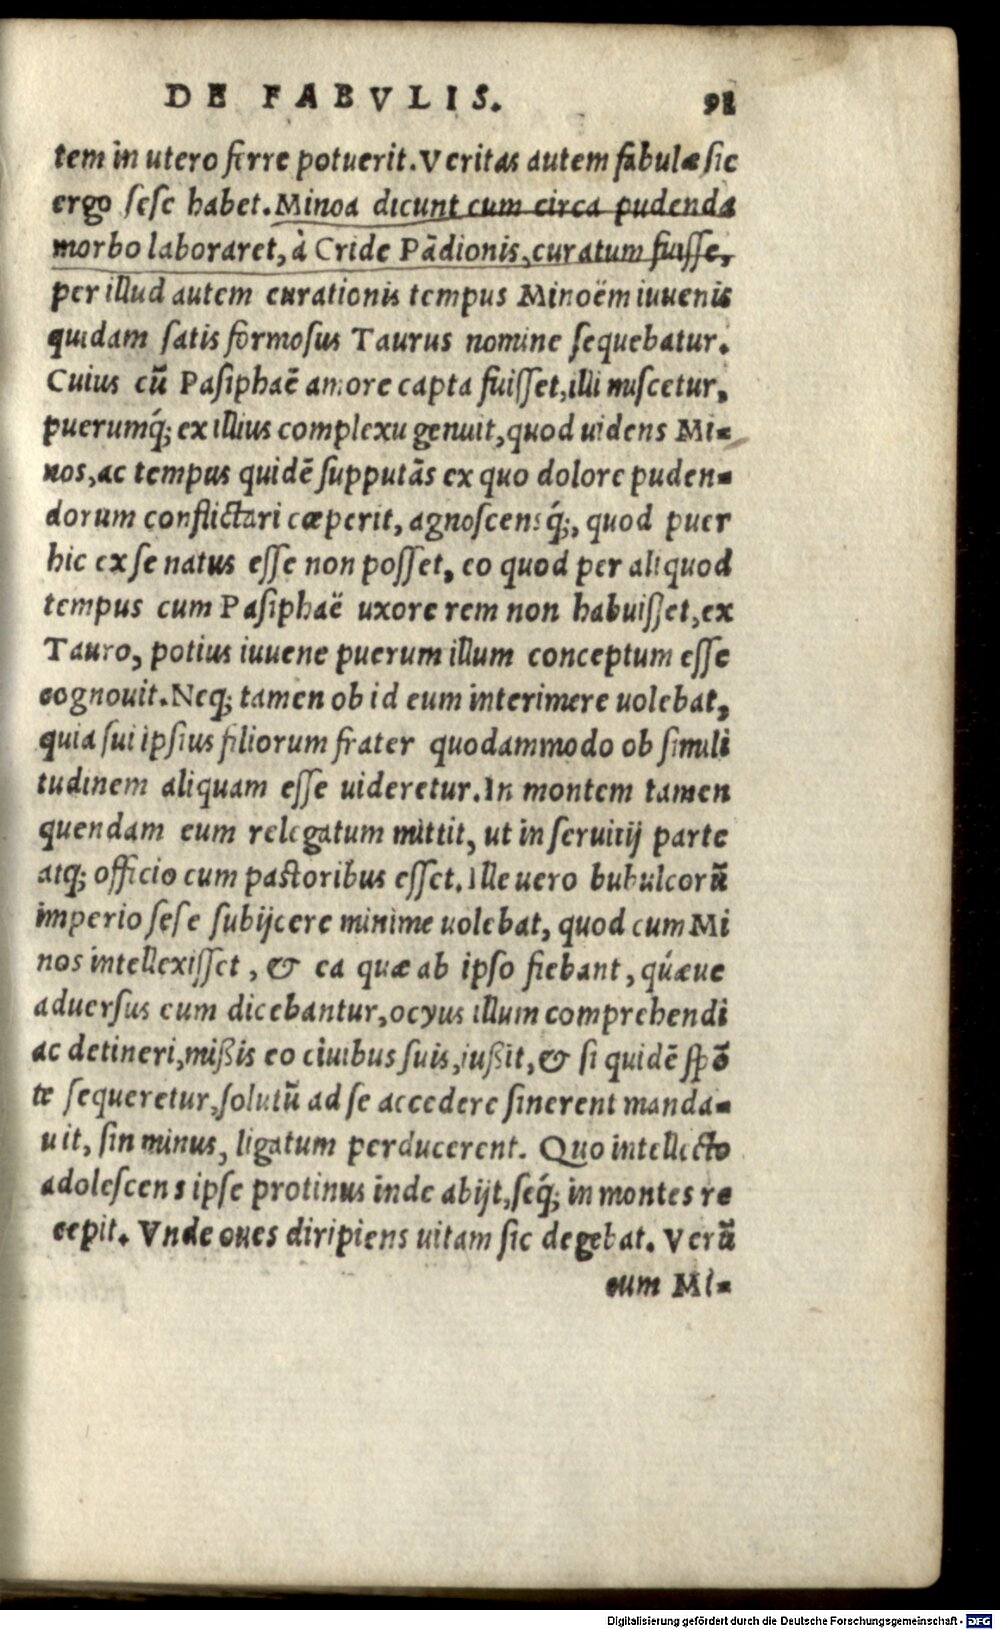 DE FABVLIS. 91
tem in utero ferre potuerit. Veritas autem fabulæ sic
ergo sese habet. Minoa dicunt cum circa pudenda
morbo laboraret, à Cride Pādionis, curatum fuisse,
per illud autem curationis tempus Minoëm iuuenis
quidam satis formosus Taurus nomine sequebatur.
Cuius cū Pasiphaē amore capta fuisset, illi miscetur,
puerumq́; ex illius complexu genuit, quod uidens Mi=
nos, ac tempus quidē supputās ex quo dolore puden=
dorum conflictari cæperit, agnoscensq́;, quod puer
hic ex se natus esse non posset, eo quod per aliquod
tempus cum Pasiphaë uxore rem non habuisset, ex
Tauro, potius iuuene puerum illum conceptum esse
cognouit. Neq; tamen ob id eum interimere uolebat,
quia sui ipsius filiorum frater quodammodo ob simili
tudinem aliquam esse uideretur. In montem tamen
quendam eum relegatum mittit, ut in seruitij parte
atq; officio cum pastoribus esset. Ille uero bubulcorū
imperio sese subijcere minime uolebat, quod cum Mi
nos intellexisset, & ea quæ ab ipso fiebant, quæue
aduersus eum dicebantur, ocyus illum comprehendi
ac detineri, mißis eo ciuibus suis, iußit, & si quidē spō
te sequeretur, solutū ad se accedere sinerent manda=
uit, sin minus, ligatum perducerent. Quo intellecto
adolescens ipse protinus inde abijt, seq́; in montes re
cepit. Vnde oues diripiens uitam sic degebat. Verū
cum Mi=
Digitalisierung gefördert durch die Deutsche Forschungsgemeinschaft - DFG